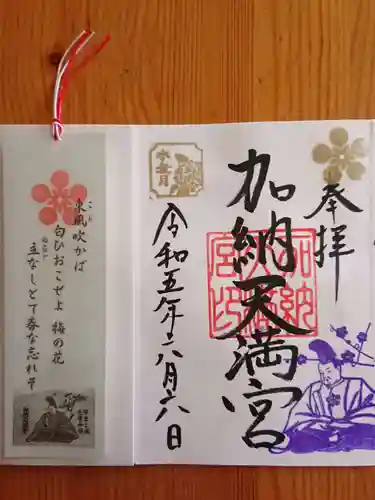 奉拝
加納天満宮
令和五年六月六日
東風吹かば
匂ひおこせよ 梅の花
主なしとて春な忘れそ